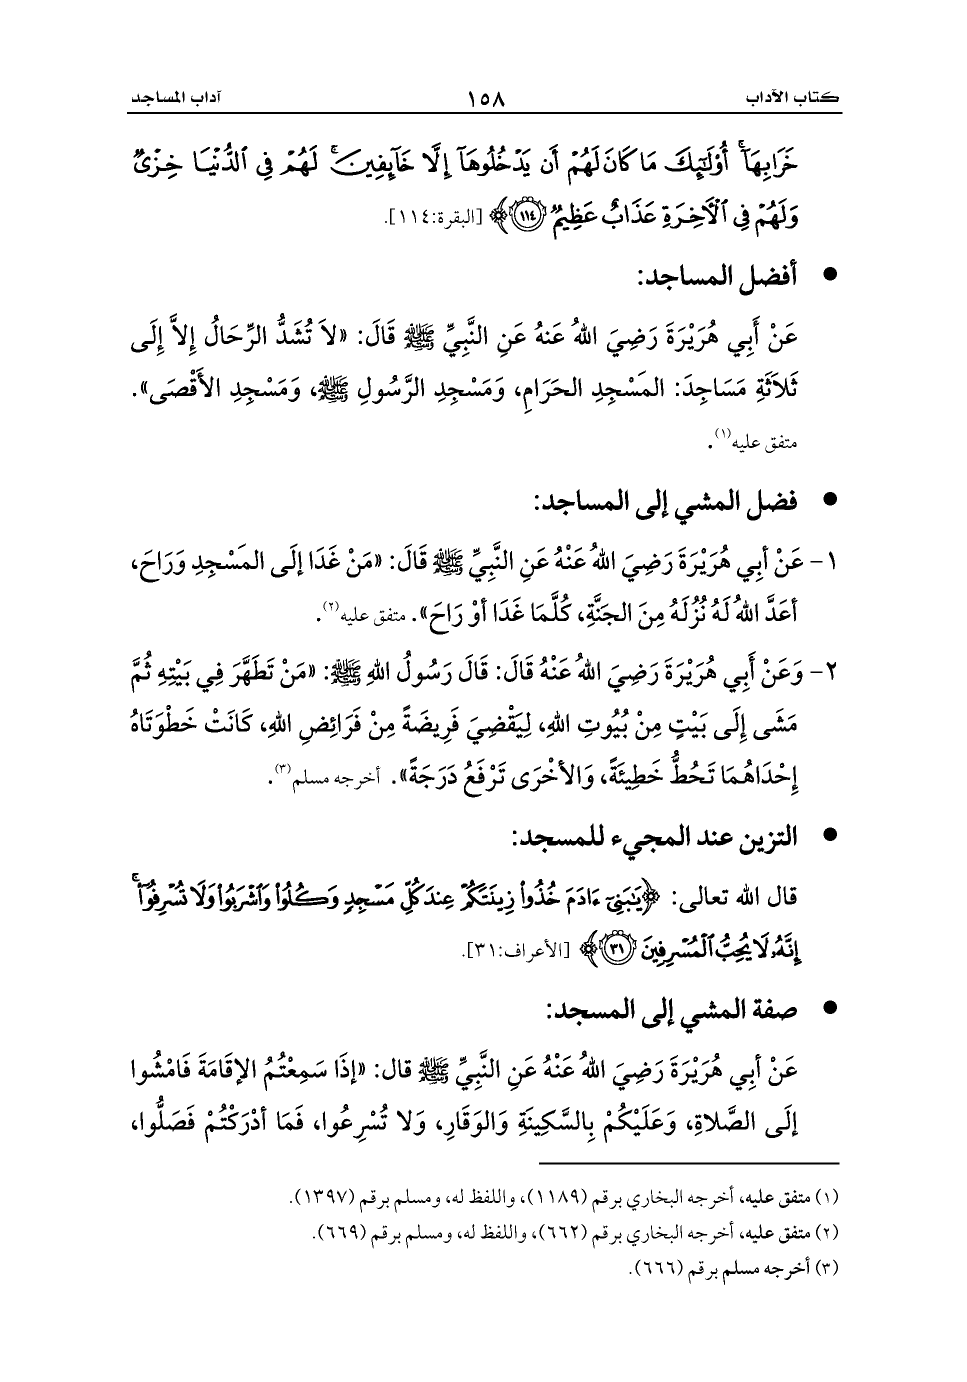 كتاب الآداب ١٥٨ آداب المساجد
خَرَابِهَآۚ أُوْلَٰٓئِكَ مَا كَانَ لَهُمْ أَن يَدْخُلُوهَآ إِلَّا خَآئِفِينَۚ لَهُمْ فِي ٱلدُّنْيَا خِزْيٌ
وَلَهُمْ فِي ٱلْأٓخِرَةِ عَذَابٌ عَظِيمٌ ﴿١١٤﴾ [البقرة:١١٤].
• أفضل المساجد:
عَنْ أَبِي هُرَيْرَةَ رَضِيَ اللهُ عَنهُ عَنِ النَّبِيِّ ﷺ قَالَ: «لاَ تُشَدُّ الرِّحَالُ إِلاَّ إِلَى
ثَلاَثَةِ مَسَاجِدَ: المَسْجِدِ الحَرَامِ، وَمَسْجِدِ الرَّسُولِ ﷺ، وَمَسْجِدِ الأَقْصَى».
متفق عليه(١).
• فضل المشي إلى المساجد:
١- عَنْ أبِي هُرَيْرَةَ رَضِيَ اللهُ عَنْهُ عَنِ النَّبِيِّ ﷺ قَالَ: «مَنْ غَدَا إلَى المَسْجِدِ وَرَاحَ،
أعَدَّ اللهُ لَهُ نُزُلَهُ مِنَ الجَنَّةِ، كُلَّمَا غَدَا أوْ رَاحَ». متفق عليه(٢).
٢- وَعَنْ أَبِي هُرَيْرَةَ رَضِيَ اللهُ عَنْهُ قَالَ: قَالَ رَسُولُ اللهِ ﷺ: «مَنْ تَطَهَّرَ فِي بَيْتِهِ ثُمَّ
مَشَى إِلَى بَيْتٍ مِنْ بُيُوتِ اللهِ، لِيَقْضِيَ فَرِيضَةً مِنْ فَرَائِضِ اللهِ، كَانَتْ خَطْوَتَاهُ
إِحْدَاهُمَا تَحُطُّ خَطِيئَةً، وَالأخْرَى تَرْفَعُ دَرَجَةً». أخرجه مسلم(٣).
• التزين عند المجيء للمسجد:
قال الله تعالى: ﴿يَٰبَنِيٓ ءَادَمَ خُذُواْ زِينَتَكُمْ عِندَ كُلِّ مَسْجِدٍ وَكُلُواْ وَٱشْرَبُواْ وَلَا تُسْرِفُوٓاْۚ
إِنَّهُۥ لَا يُحِبُّ ٱلْمُسْرِفِينَ ﴿٣١﴾ [الأعراف:٣١].
• صفة المشي إلى المسجد:
عَنْ أبِي هُرَيْرَةَ رَضِيَ اللهُ عَنْهُ عَنِ النَّبِيِّ ﷺ قال: «إذَا سَمِعْتُمُ الإقَامَةَ فَامْشُوا
إلَى الصَّلاةِ، وَعَلَيْكُمْ بِالسَّكِينَةِ وَالوَقَارِ، وَلا تُسْرِعُوا، فَمَا أدْرَكْتُمْ فَصَلُّوا،
(١) متفق عليه، أخرجه البخاري برقم (١١٨٩)، واللفظ له، ومسلم برقم (١٣٩٧).
(٢) متفق عليه، أخرجه البخاري برقم (٦٦٢)، واللفظ له، ومسلم برقم (٦٦٩).
(٣) أخرجه مسلم برقم (٦٦٦).